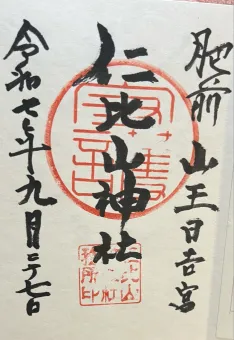 肥前 山王日吉宮
仁比山神社
令和七年九月二七日